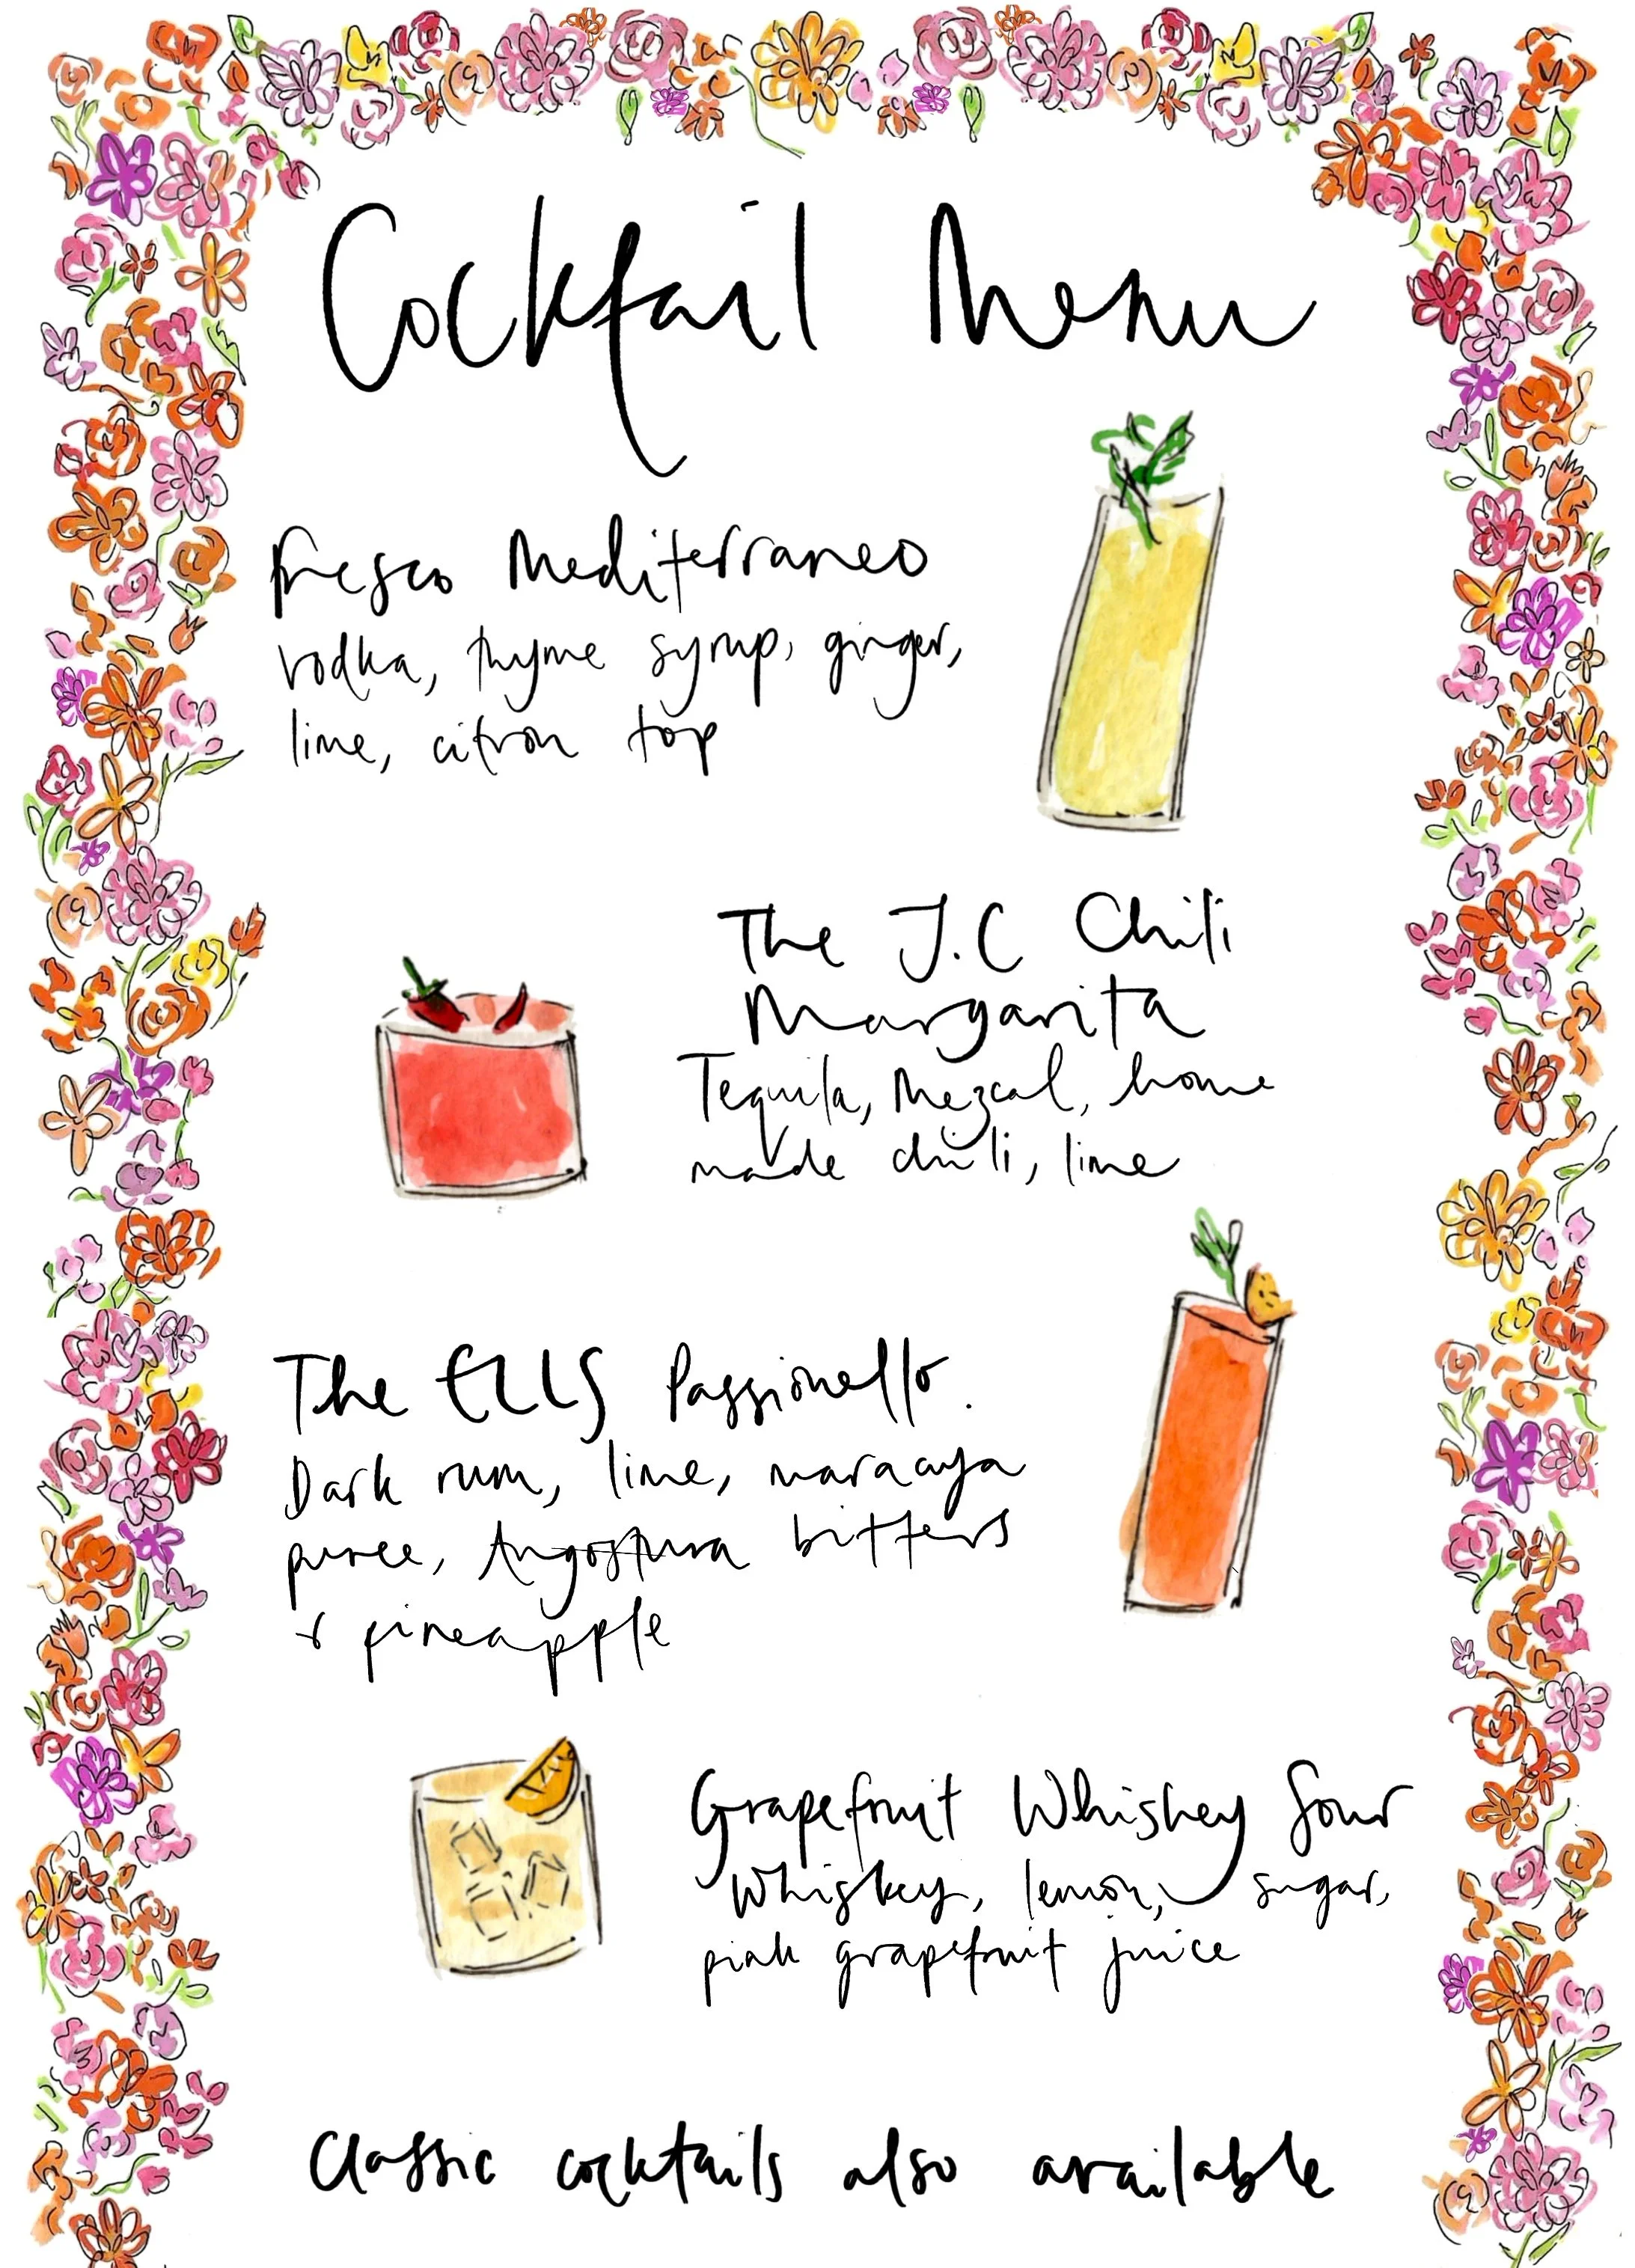 Cocktail Menu
Fresco Mediterraneo
vodka, thyme syrup, ginger,
lime, citron top
The J.C Chili
Margarita
Tequila, Mezcal, home
made chili, lime
The ELLS Passionello.
Dark rum, lime, maracuya
puree, Angostura bitters
& pineapple
Grapefruit Whiskey Sour
Whiskey, lemon, sugar,
pink grapefruit juice
Classic cocktails also available